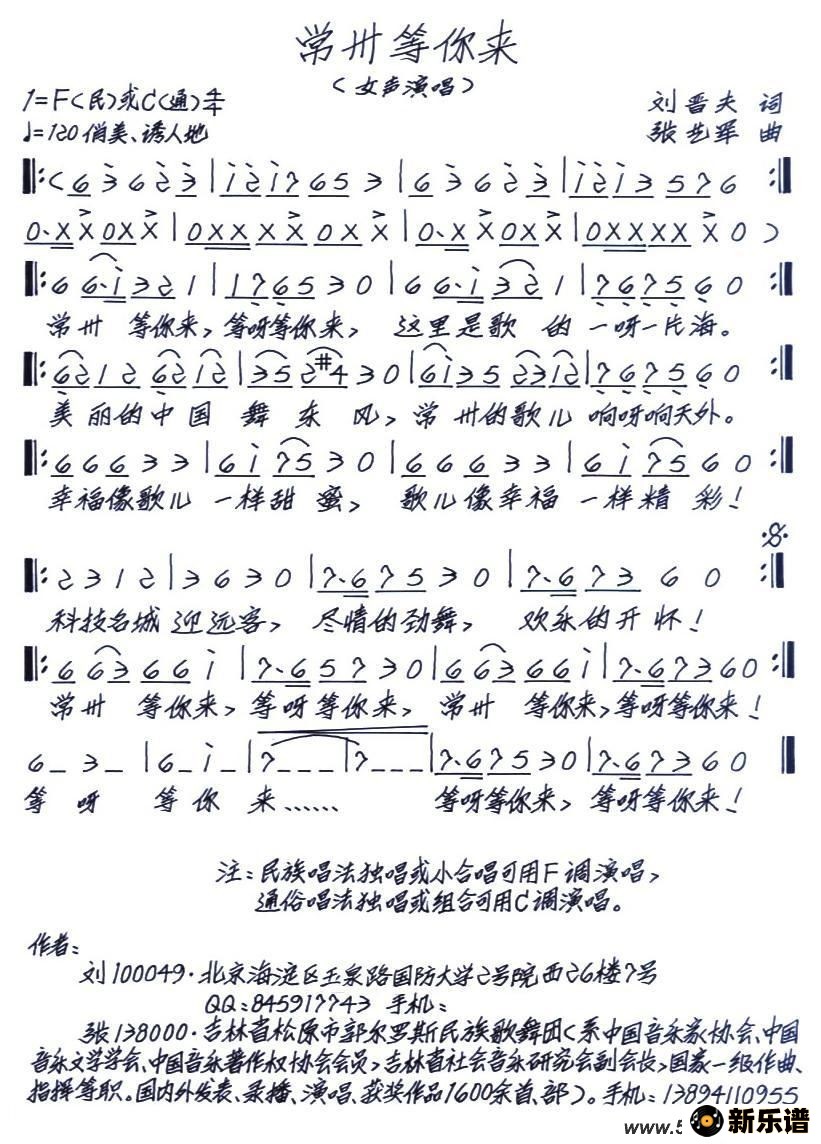 常州等你来
(女声演唱)
1=F(民)或C(通)4/4
刘晋夫 词
♩=120 俏美、诱人地
张艺军 曲
‖:(6 3 6 2 3 | 1 2 1 7 6 5 3 | 6 3 6 2 3 | 1 2 1 3 5 7 6 :‖
0·X X 0X X | 0XXX X X 0X X | 0·X X 0X X | 0XXXXX X 0 )
‖: 6 6·1 3 2 1 | 1 7 6 5 3 0 | 6 6·1 3 2 1 | 7 6 7 5 6 0 :‖
常州 等你来, 等呀等你来, 这里是歌 的一呀一片海。
‖: 6 2 1 2 6 2 1 2 | 3 5 2 #4 3 0 | 6 1 3 5 2 3 1 2 | 7 6 7 5 6 0 :‖
美丽的中国 舞东风, 常州的歌儿 响呀响天外。
‖: 6 6 6 3 3 | 6 1 7 5 3 0 | 6 6 6 3 3 | 6 1 7 5 6 0 :‖
幸福像歌儿 一样甜 蜜, 歌儿像幸福 一样精 彩!
‖: 2 3 1 2 | 3 6 3 0 | 7·6 7 5 3 0 | 7·6 7 3 6 0 :‖
科技名城 迎远客, 尽情的劲舞, 欢乐的开怀!
‖: 6 6 3 6 6 1 | 7·6 5 7 3 0 | 6 6 3 6 6 1 | 7·6 7 3 6 0 :‖
常州 等你来, 等呀等你来, 常州 等你来, 等呀等你来!
6 _ 3 _ | 6 _ 1 _ | 7 _ _ _ | 7 _ _ _ | 7·6 7 5 3 0 | 7·6 7 3 6 0 ‖
等 呀 等 你 来…… 等呀等你来, 等呀等你来!
注:民族唱法独唱或小合唱可用F调演唱,
通俗唱法独唱或组合可用C调演唱。
作者:
刘100049·北京海淀区玉泉路国防大学2号院西26楼7号
QQ:845917743 手机:
张138000·吉林省松原市郭尔罗斯民族歌舞团(系中国音乐家协会、中国
音乐文学学会、中国音乐著作权协会会员,吉林省社会音乐研究会副会长,国家一级作曲、
指挥等职。国内外发表、录播、演唱、获奖作品1600余首、部)。手机:13894110955
www.5
新乐谱